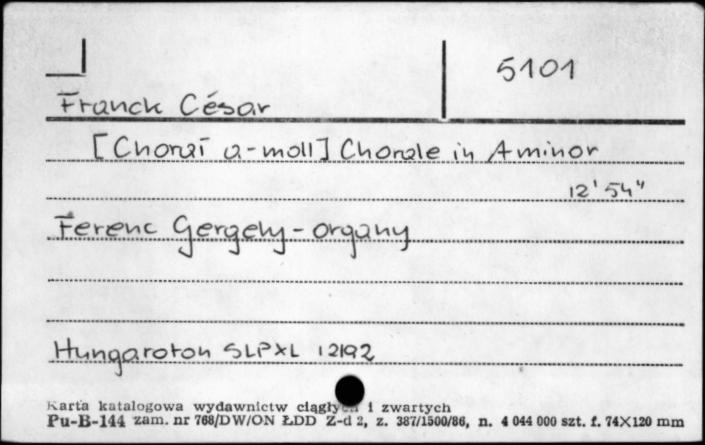 5101
Franck César
[Chorał a-moll] Chorale in A minor
12'54"
Ferenc Gergely - organy
Hungaroton SLPXL 12192
Karta katalogowa wydawnictw ciągłych i zwartych
Pu-B-144 zam. nr 768/DW/ON ŁDD Z-d 2, z. 387/1500/86, n. 4 044 000 szt. f. 74X120 mm